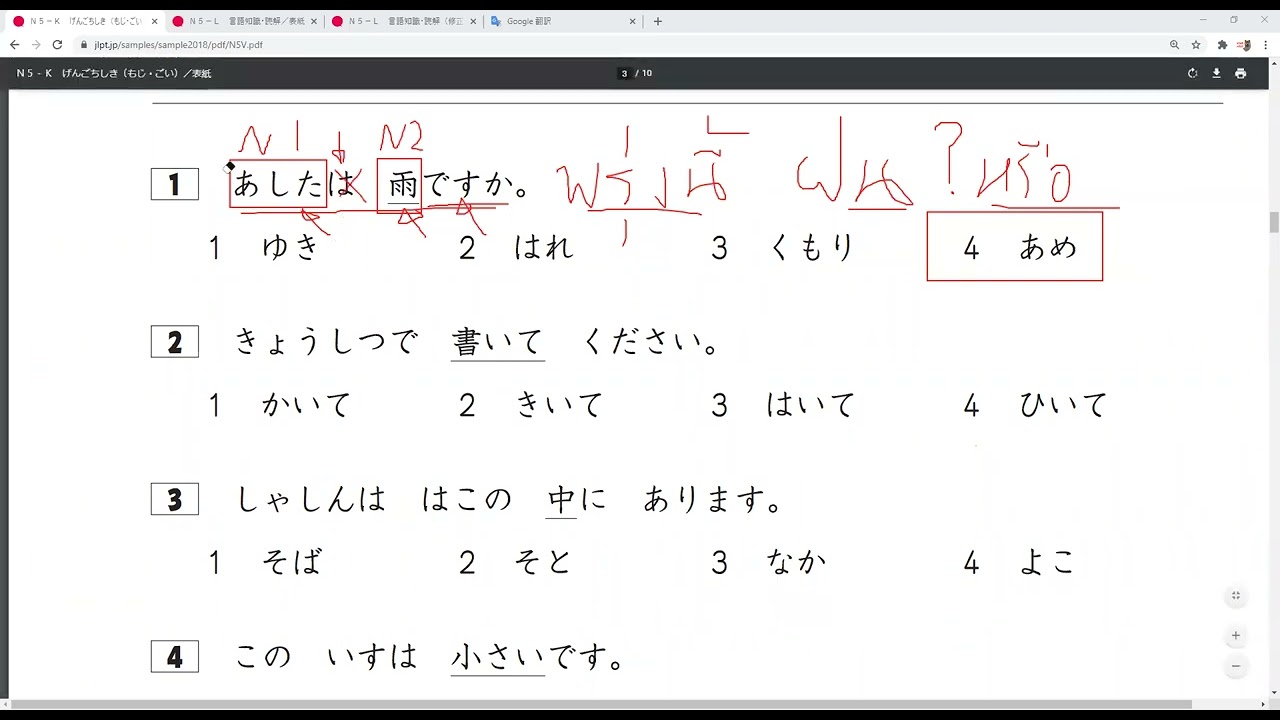 N5-K げんごちしき（もじ・ごい
N5-L 言語知識・読解／表紙
N5-L 言語知識・読解（修正
Google 翻訳
jlpt.jp/samples/sample2018/pdf/N5V.pdf
N5-K げんごちしき（もじ・ごい）／表紙
3 / 10
N1 N2
พรุ่งนี้ ฝน ? หรือ
1 あしたは 雨ですか。
1 ゆき 2 はれ 3 くもり 4 あめ
2 きょうしつで 書いて ください。
1 かいて 2 きいて 3 はいて 4 ひいて
3 しゃしんは はこの 中に あります。
1 そば 2 そと 3 なか 4 よこ
4 この いすは 小さいです。